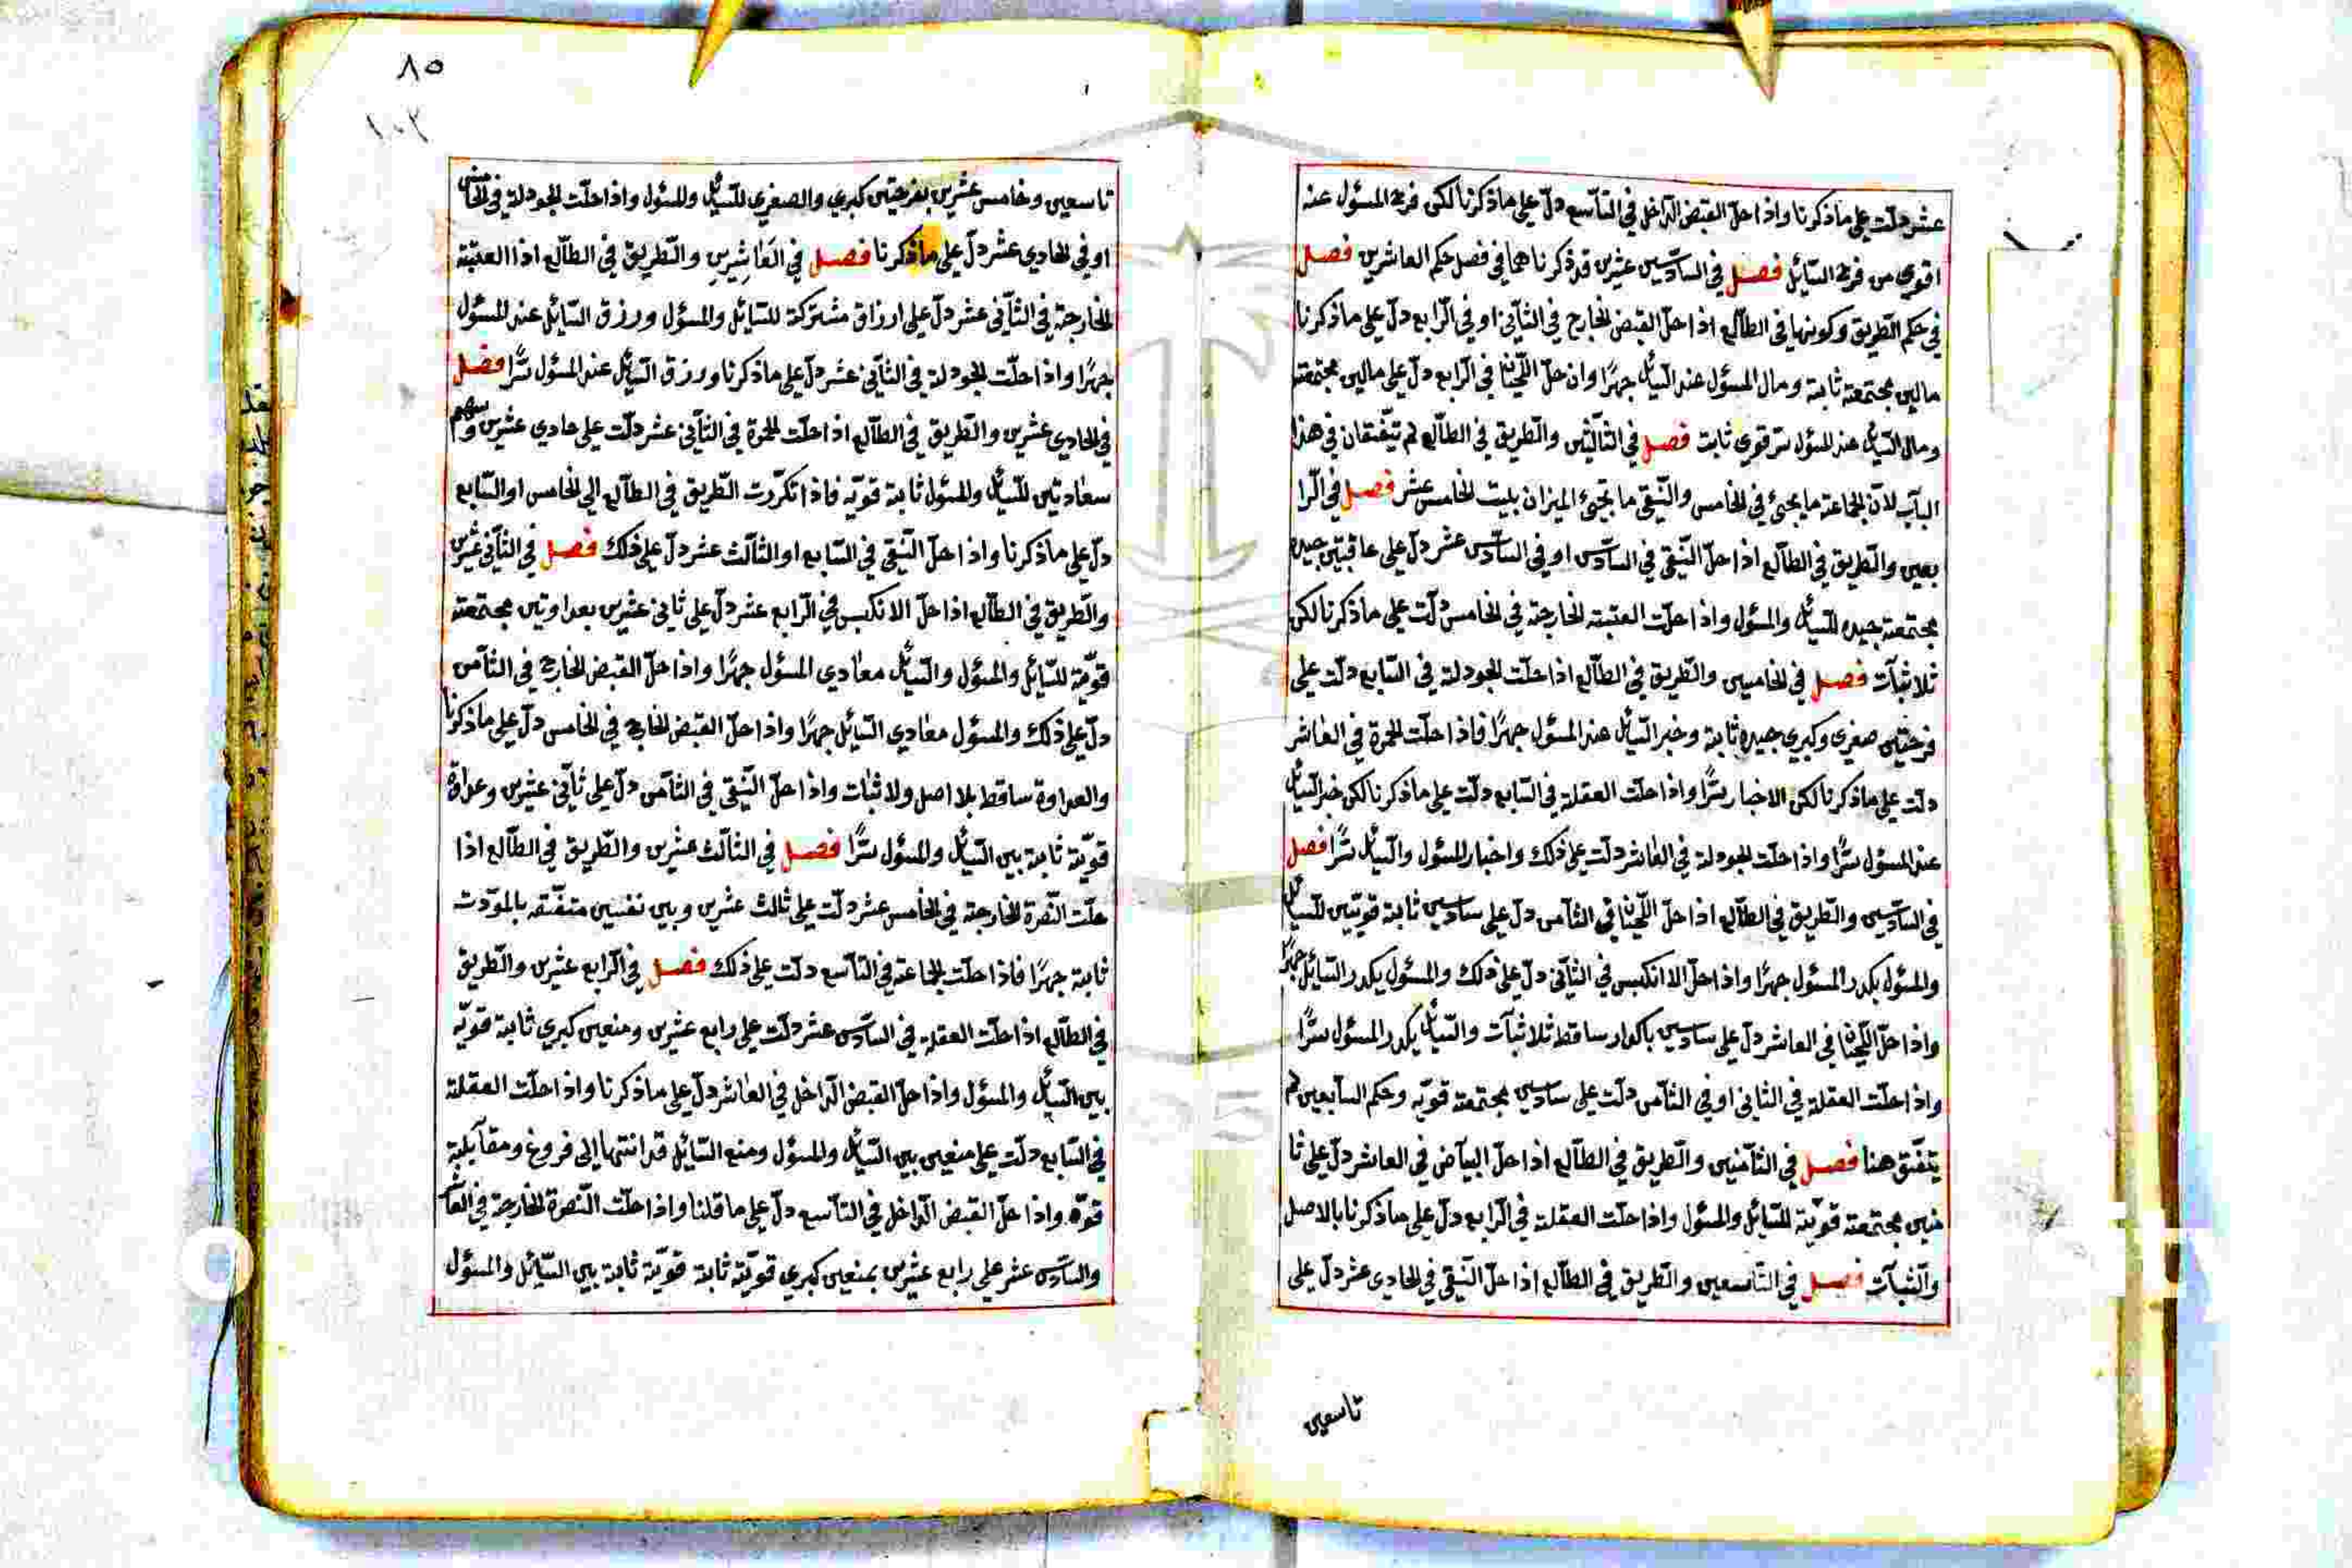 عشر دلّت على ما ذكرنا واذا حلّ القبض الدّاخل في التّاسع دلّ على ما ذكرنا لكن فرح المسؤل عنه
اقوي من فرح السّائل فصل في السّادسين عشرين قد ذكرناهما في فصل حكم العاشرين فصل
في حكم الطّريق وكونها في الطّالع اذا حلّ القبض الخارج في الثّاني او في الرّابع دلّ على ما ذكرنا
مالين مجتمعة ثابتة ومال المسؤل عند السّائل جهرًا وان حلّ اللّحيان في الرّابع دلّ على مالين مجتمعة
ومال السّائل عند المسؤل سر قوي ثابت فصل في الثّالثين والطّريق في الطّالع لم تيّفقان في هذا
الباب لان الجماعة ما يجئ في الخامس والنّقي ما يجئ الميزان بليت الخامس عشر فصل في الرّا
بعين والطّريق في الطّالع اذا حلّ النّقي في السّادس او في السّادس عشر دلّ على عاقبتين جيده
مجتمعة جيده للسّائل والمسؤل واذا حلّت العتبة الخارجة في الخامس دلّت على ما ذكرنا لكن
ثلاثبآت فصل في الخامسين والطّريق في الطّالع اذا حلّت الجودلة في السّابع دلّت على
فرحتين صغري وكبري جيده ثابتة وخبر السّائل عند المسؤل جهرًا فاذا حلّت الحمرة في العاشر
دلّت على ما ذكرنا لكن الاخبار سرًّا واذا حلّت العقلة في السّابع دلّت على ما ذكرنا لكن خبر السّائل
عند المسؤل سرًّا واذا حلّت الجودلة في العاشر دلّت على ذلك واخبار المسؤل والسّائل سرًّا فصل
في السّادسين والطّريق في الطّالع اذا حلّ اللّحيان في الثّامن دلّ على سادسين ثابتة قويّتين للسّائل
والمسؤل يكدر المسؤل جهرًا واذا حلّ الاانكيس في الثّاني دلّ على ذلك والمسؤل يكدر السّائل جهرًا
واذا حلّ اللّحيان في العاشر دلّ على سادسين باكدار ساقط ثلاثبآت والسّائل يكدر المسؤل سرًّا
واذا حلّت العقلة في الثاني او في الثّامن دلّت على سادسين مجتمعة قويّه وحكم السّابعين لم
يتّفق هنا فصل في الثّامنين والطّريق في الطّالع اذا حلّ البياض في العاشر دلّ على ثا
منين مجتمعة قويّة للسّائل والمسؤل واذا حلّت العقلة في الرّابع دلّ على ما ذكرنا بالاصل
والثّبآت فصل في التّاسعين والطّريق في الطّالع اذا حلّ النّقي في الحادي عشر دلّ على
تاسعين
٨٥
١٠٢
تاسعين وخامس عشرين بفرحتين كبري والصغري للسّائل والمسؤل واذا حلّت الجودلة في الخامس
او في الحادي عشر دلّ على ما ذكرنا فصل في العَاشِرِين والطّريق في الطّالع اذا العتبة
الخارجة في الثّاني عشر دلّ على ارزاق مشتركة للسّائل والمسؤل ورزق السّائل عند المسؤل
جهرًا واذا حلّت الجودلة في الثّاني عشر دلّ على ما ذكرنا ورزق السّائل عند المسؤل سرًّا فصل
في الحادي عشرين والطّريق في الطّالع اذا حلّت الحمرة في الثّاني عشر دلّت على حادي عشرين وسهم
سعادتين للسّائل والمسؤل ثابتة قويّه فاذا تكرّرت الطّريق في الطّالع الي الخامس او السّابع
دلّ على ما ذكرنا واذا حلّ النّقي في السّابع او الثّالث عشر دلّ على ذلك فصل في الثّاني عشرين
والطّريق في الطّالع اذا حلّ الانكيس في الرّابع عشر دلّ على ثاني عشرين بعداوتين مجتمعة
قويّة للسّائل والمسؤل والسّائل معادي المسؤل جهرًا واذا حلّ القبض الخارج في الثّامن
دلّ على ذلك والمسؤل معادي السّائل جهرًا واذا حلّ القبض الخارج في الخامس دلّ على ما ذكرنا
والعداوة ساقط بلا اصل ولا ثبات واذا حلّ النّقي في الثّامن دلّ على ثاني عشرين وعداوة
قويّة ثابتة بين السّائل والمسؤل سرًّا فصل في الثالث عشرين والطّريق في الطّالع اذا
حلّت النّصرة الخارجة في الخامس عشر دلّت على ثالث عشرين وبين نفسين متفّقه بالمودّت
ثابتة جهرًا فاذا حلّت الجماعة في التّاسع دلّت على ذلك فصل في الرّابع عشرين والطّريق
في الطّالع اذا حلّت العقلة في السّادس عشر دلّت على رابع عشرين ومنعين كبري ثابتة قويّه
بين السّائل والمسؤل واذا حلّ القبض الدّاخل في العاشر دلّ على ما ذكرنا واذا حلّت العقلة
في السّابع دلّت على منعين بين السّائل والمسؤل ومنع السّائل قد انتها الى فروغ ومقابلة
قوّه واذا حلّ القبض الدّاخل في التاسع دلّ على ما قلنا واذا حلّت النّصرة الخارجة في العاشر
والسّادس عشر على رابع عشرين بمنعين كبري قويّة ثابتة قويّة ثابتة بين السّائل والمسؤل